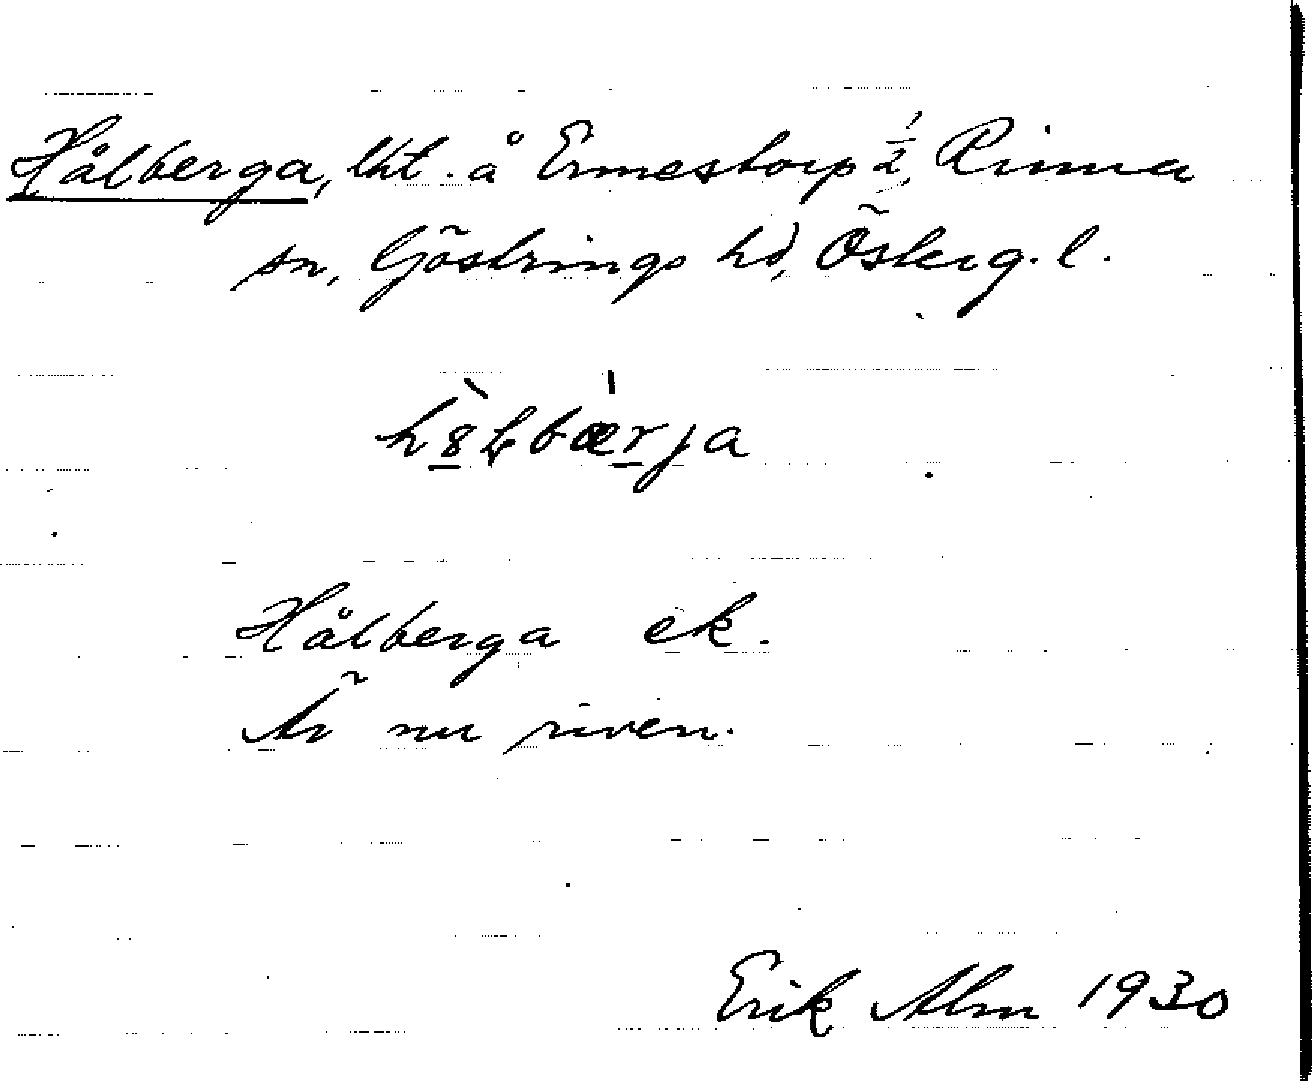 Hålberga, lht. å Ermestorp ½, Rinna
sn, Göstrings hd, Österg. l.
Hålberga ek.
Är nu riven.
Erik Alm 1930